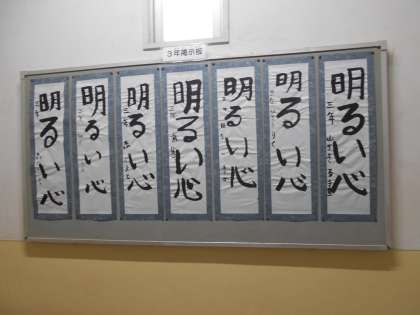 3年掲示板
明るい心
明るい心
明るい心
明るい心
明るい心
明るい心
明るい心
三年